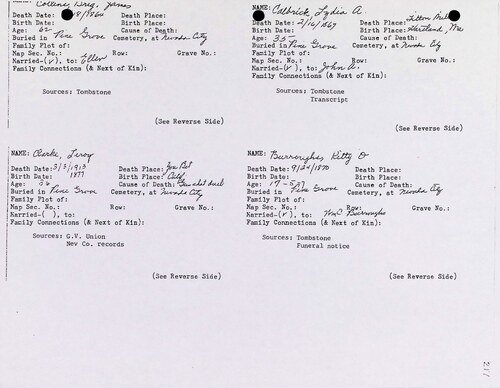 Collins, James
Death Date: 8/1860 Death Place:
Birth Date: Birth Place:
Age: 62 Cause of Death:
Buried in Pine Grove Cemetery, at Nevada City
Family Plot of:
Map Sec. No.: Row: Grave No.:
Married-(✓), to: Ellen
Family Connections (& Next of Kin):
Sources: Tombstone
(See Reverse Side)
NAME: Colbrick Lydia A.
Death Date: 2/16/1869 Death Place:
Birth Date: Birth Place: Hartland, Me
Age: 35 Cause of Death:
Buried in Pine Grove Cemetery, at Nevada City
Family Plot of:
Map Sec. No.: Row: Grave No.:
Married-(✓), to: John A.
Family Connections (& Next of Kin):
Sources: Tombstone
Transcript
(See Reverse Side)
NAME: Clarke, Leroy
Death Date: 3/5/1913 Death Place:
Birth Date: 1877 Birth Place: City
Age: 36 Cause of Death: Gun shot
Buried in Pine Grove Cemetery, at Nevada City
Family Plot of:
Map Sec. No.: Row: Grave No.:
Married-( ), to:
Family Connections (& Next of Kin):
Sources: G.V. Union
Nev Co. records
(See Reverse Side)
NAME: Burroughs, Kitty O
Death Date: 9/24/1870 Death Place:
Birth Date: Birth Place:
Age: 17-5 Cause of Death:
Buried in Pine Grove Cemetery, at Nevada City
Family Plot of:
Map Sec. No.: Row: Grave No.:
Married-(✓), to: Wm C Burroughs
Family Connections (& Next of Kin):
Sources: Tombstone
Funeral notice
(See Reverse Side)
211